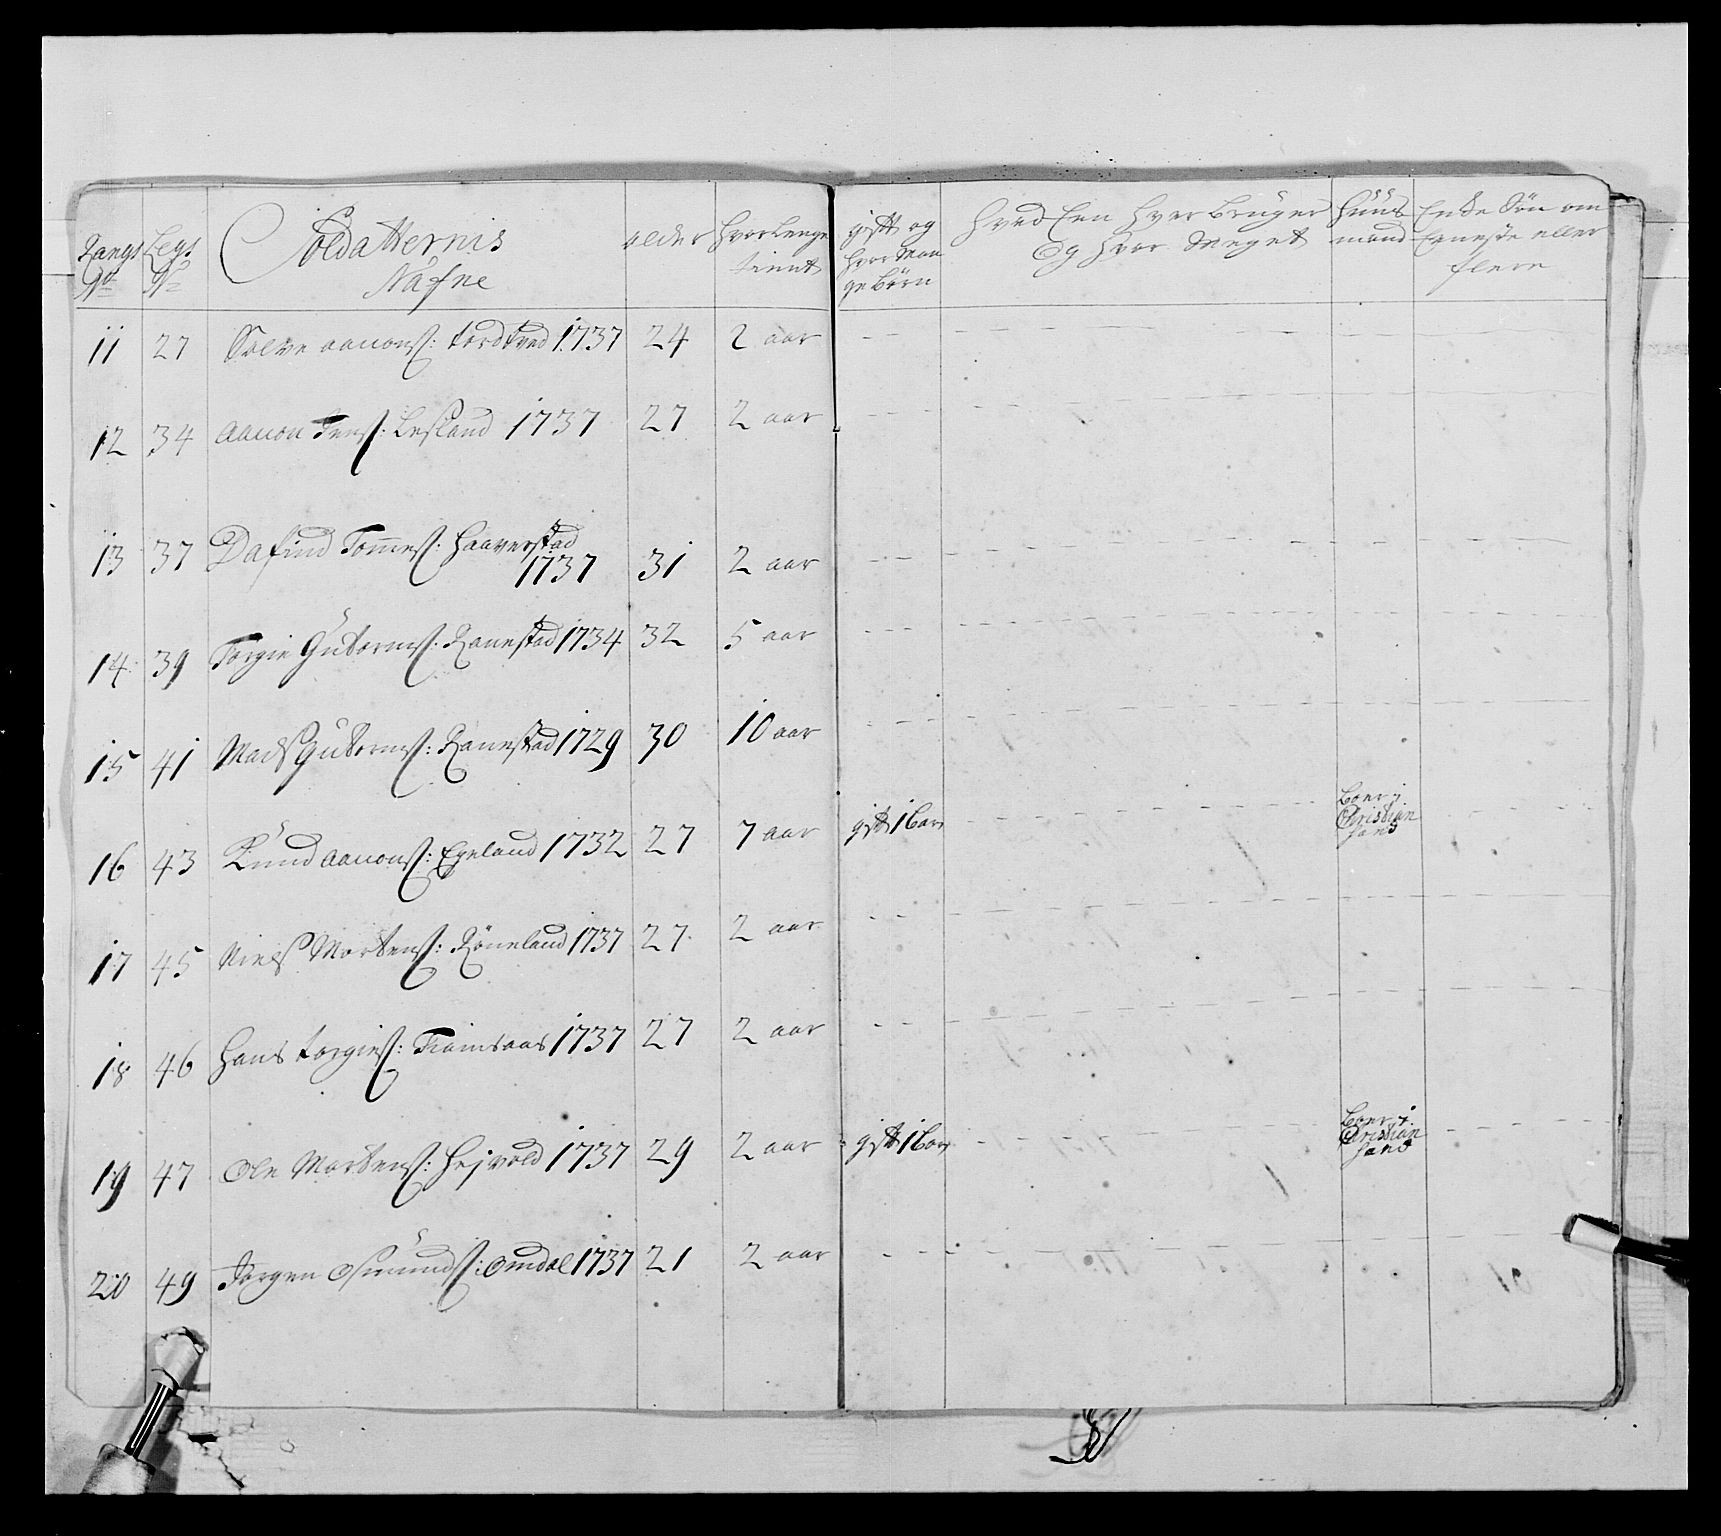 Rangs No Legs No Soldatternis Nafne alder hvor lenge tient gift og hvor Man ge börn hved Een hver bruger og hvor Meget huus mand Enke Sön om Eeneste eller flere
11 27 Solve aanons: tordtved 1737 24 2 aar - - -
12 34 Aanon Jens: Lesland 1737 27 2 aar - - -
13 37 Dafind Tomes: Haaverstad
1737 31 2 aar - - -
14 39 Torgie Gutorms: Ranestad 1734 32 5 aar - - -
15 41 Mads Gutorms: Ranestad 1729 30 10 aar - - -
16 43 Knud aanons: Egeland 1732 27 7 aar gift 1 barn boer i Christian sand
17 45 Niels Mortens: Röneland 1737 27 2 aar - - -
18 46 Hans torgies: 1737 27 2 aar - - -
19 47 Ole Mortens: Hejvold 1737 29 2 aar gift 1 barn boer i Christian sand
20 49 Jörgen Osmunds: Omdal 1737 21 2 aar - - -